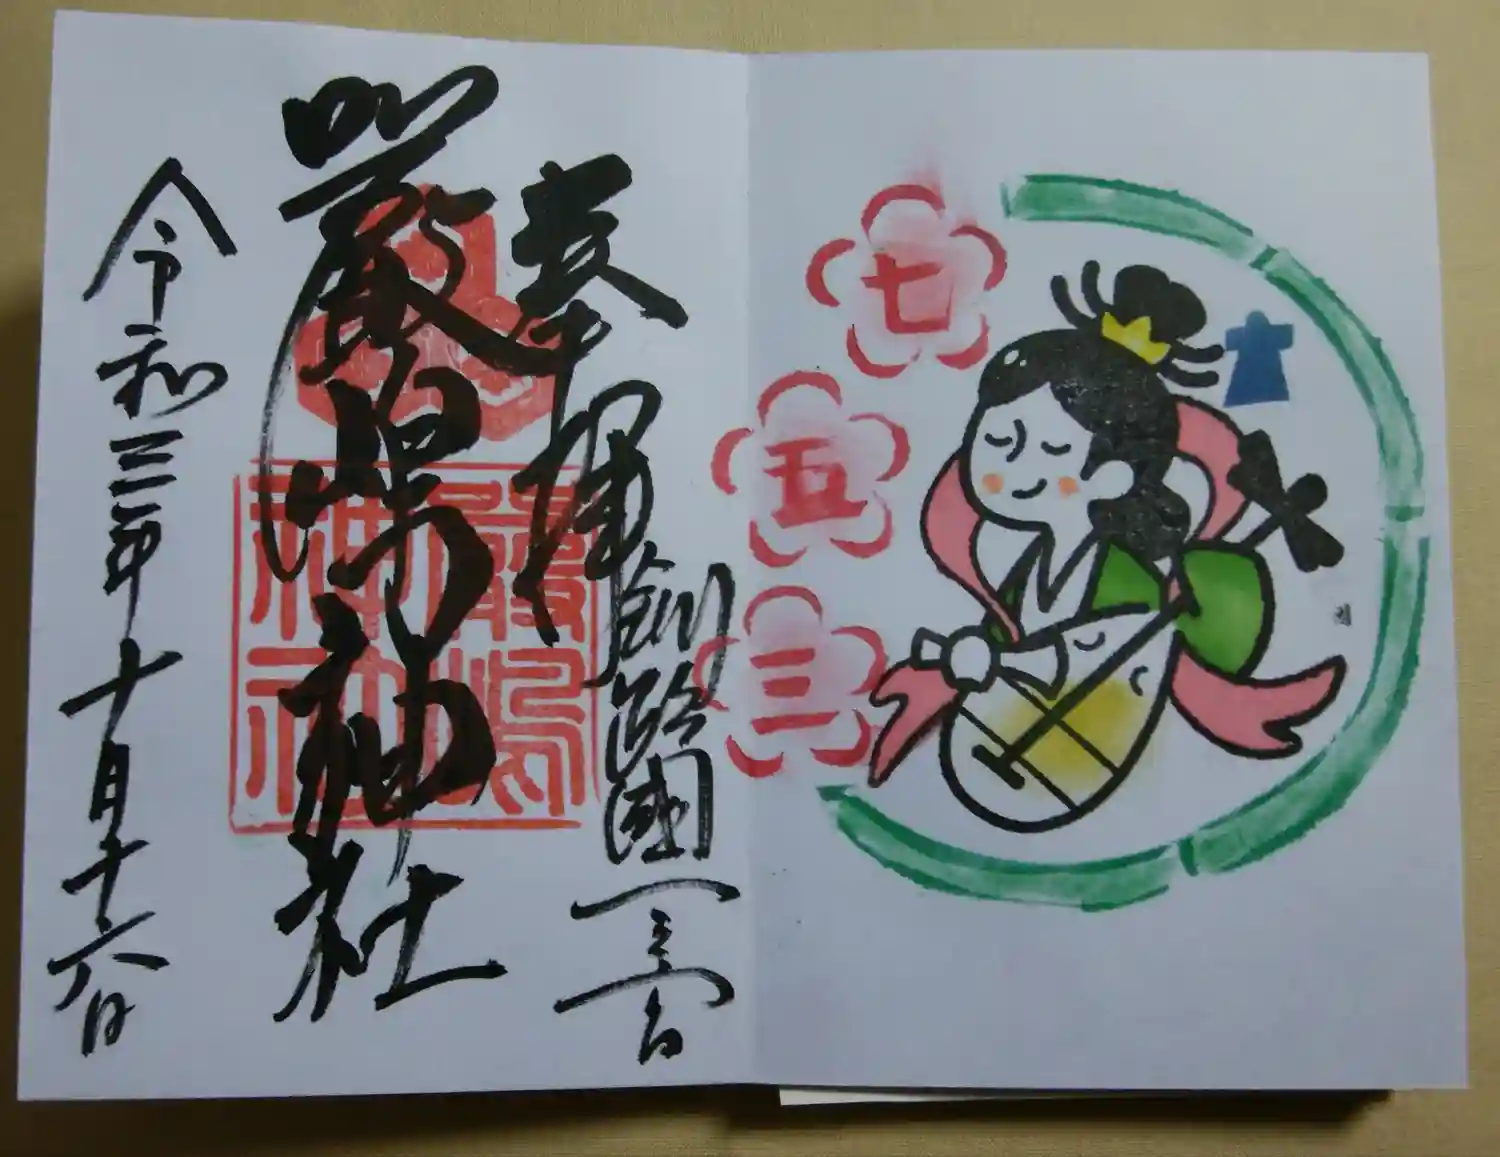 七
五
三
奉拝
釧路國一之宮
厳島神社
厳島
神社
令和三年十月十六日